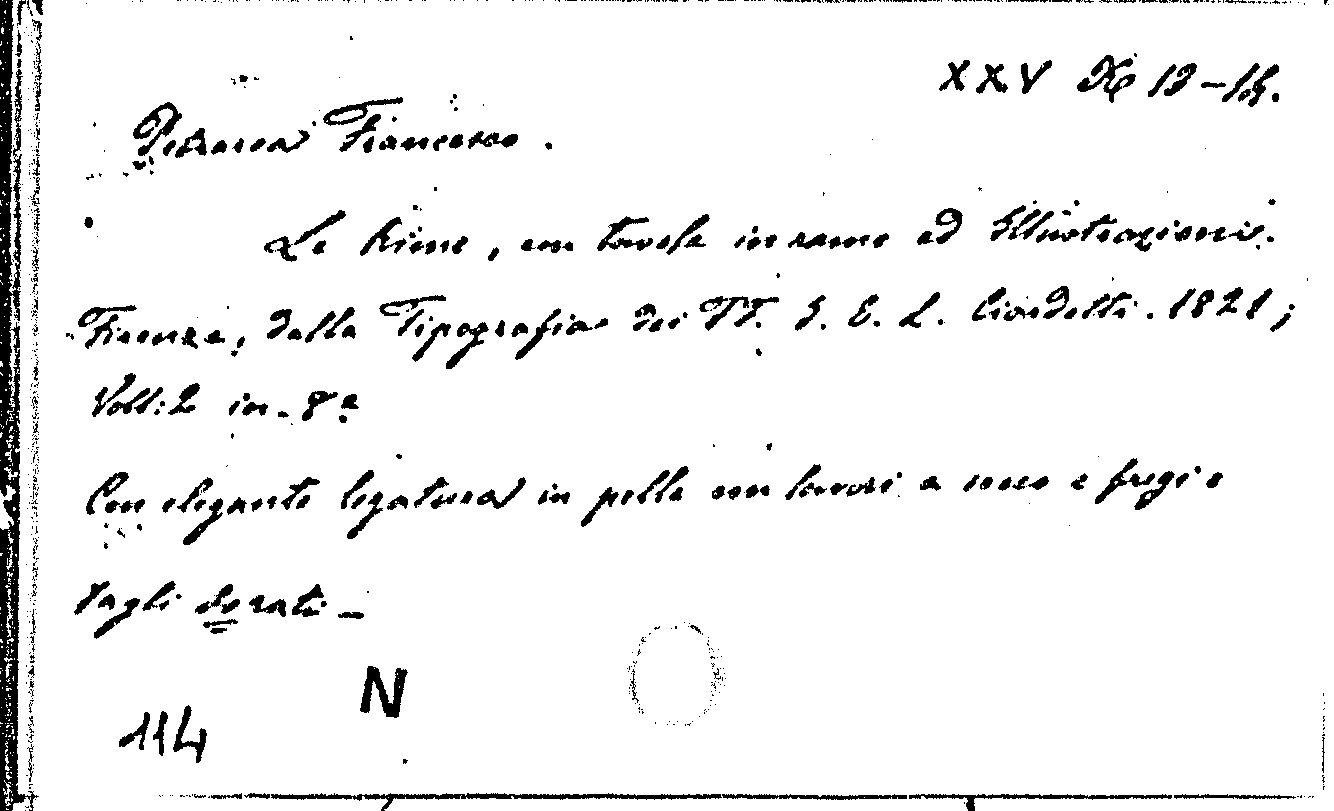 XXV X 13-14.
Petrarca Francesco.
Le Rime, con tavole in rame ed Illustrazioni.
Firenze, dalla Tipografia dei TT. J. E. L. Ciardetti. 1821;
Voll: 2 in-8º
Con elegante legatura in pelle con lavori a secco e fregi e
tagli dorati -
N
114